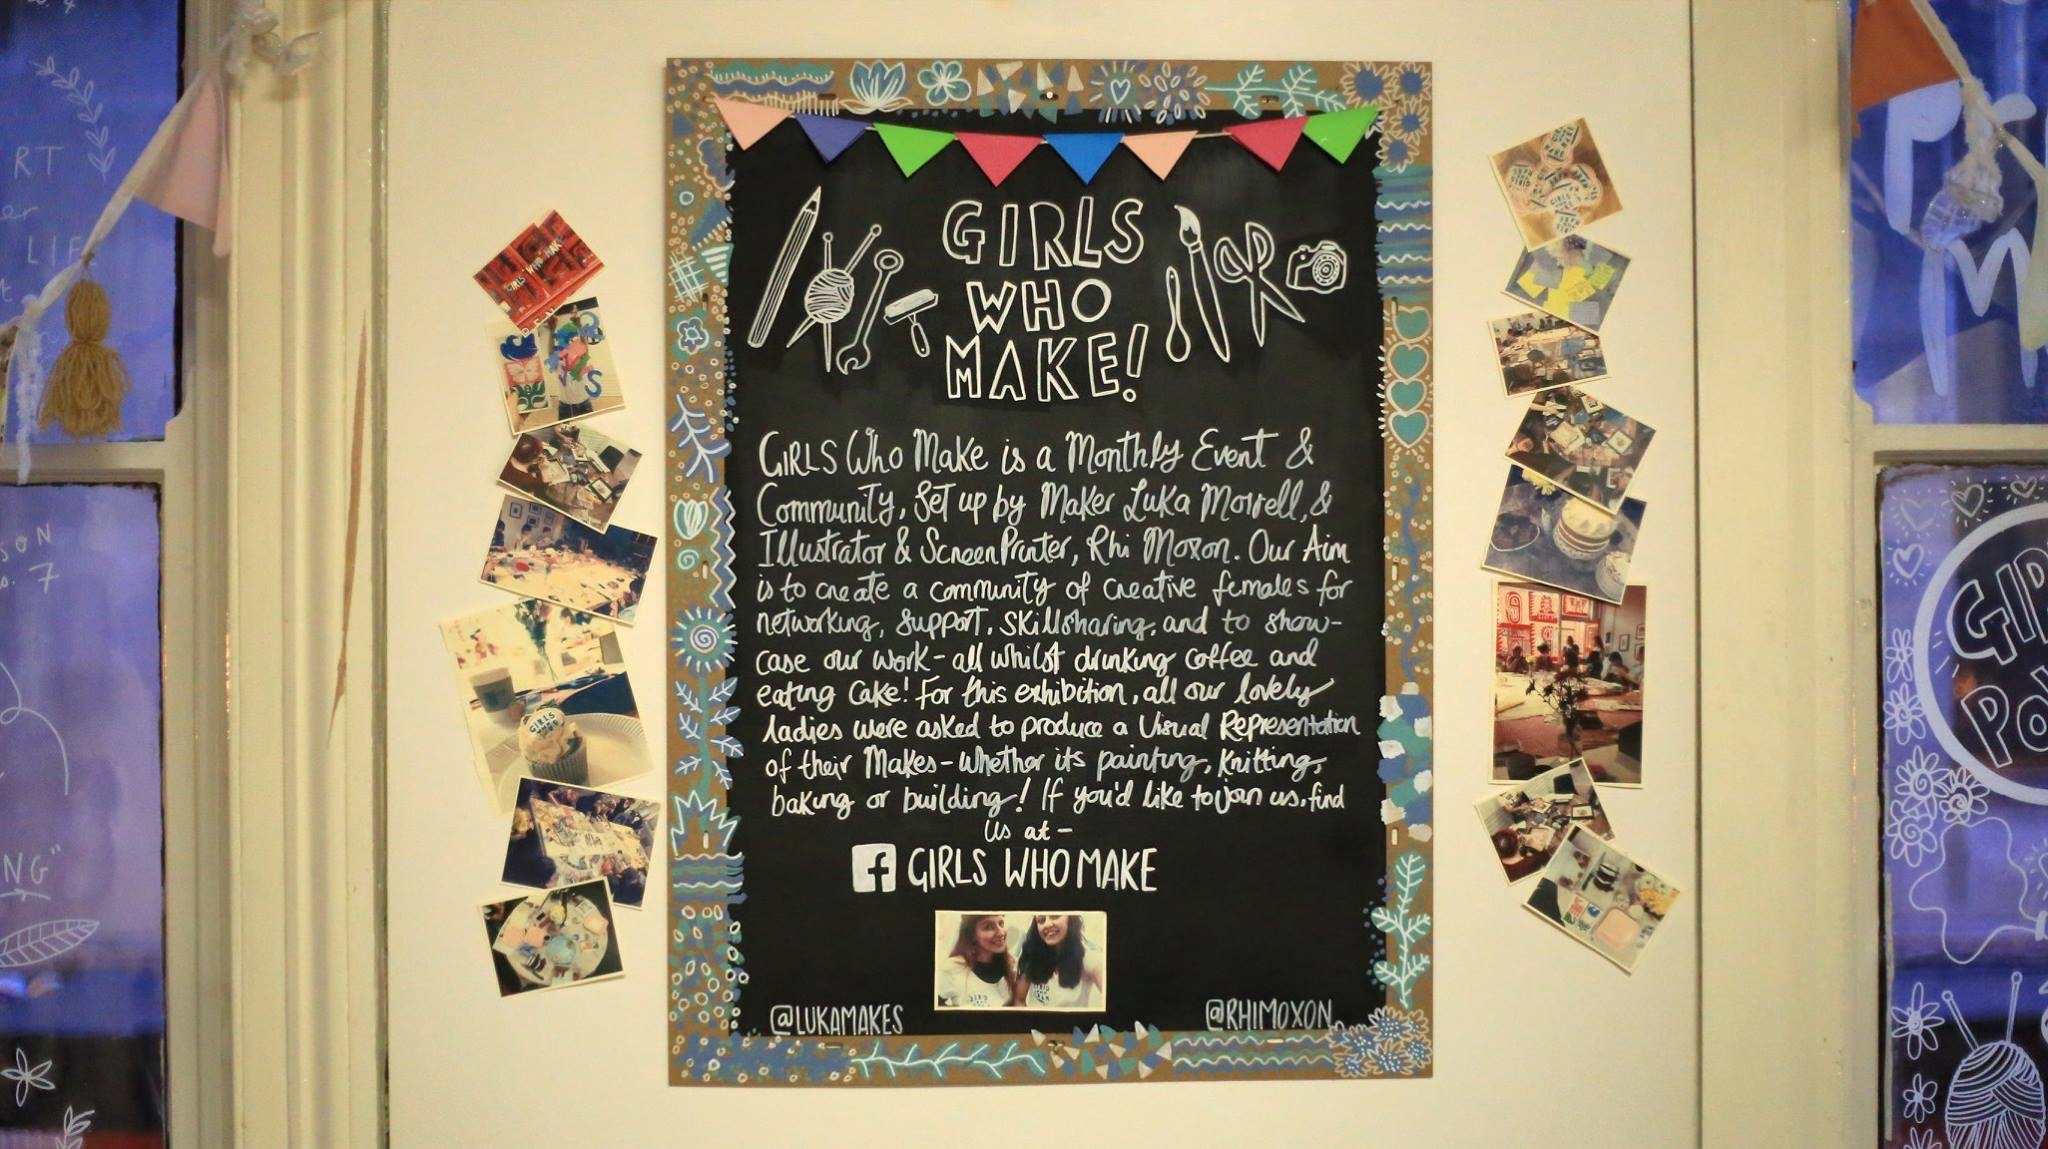 GIRLS
WHO
MAKE!
GIRLS Who Make is a Monthly Event &
Community, Set up by Maker Luka Morrell, &
Illustrator & Screen Printer, Rhi Moxon. Our Aim
is to create a community of creative females for
networking, support, skillsharing, and to show-
case our work - all whilst drinking coffee and
eating cake! For this exhibition, all our lovely
ladies were asked to produce a Visual Representation
of their Makes - whether its painting, knitting,
baking or building! If you'd like to join us, find
us at -
f GIRLS WHO MAKE
@LUKAMAKES
@RHIMOXON
RT
LIF
SON
7
NG"
GIRLS WHO MAKE
GIRLS